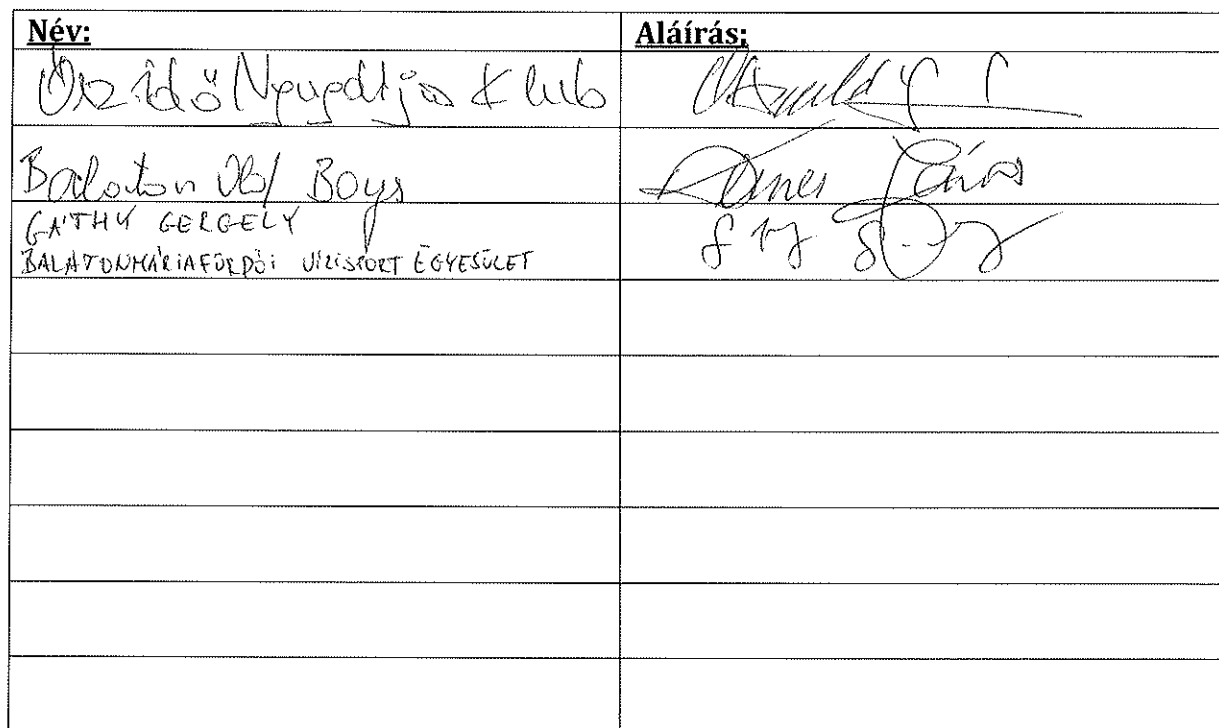 Név: Aláírás:
Őszidő Nyugdíjas Klub
Balaton Old Boys Dömei János
GÁTHY GERGELY
BALATONMÁRIAFÜRDŐI VÍZISPORT EGYESÜLET